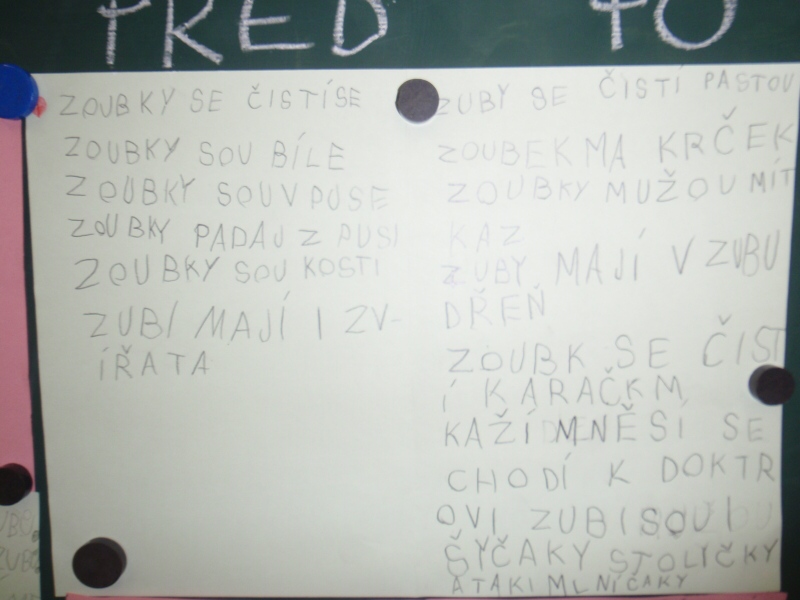 PŘED
PO
ZOUBKY SE ČISTÍSE
ZOUBKY SOU BÍLE
ZOUBKY SOU V PUSE
ZOUBKY PADAJ Z PUSI
ZOUBKY SOU KOSTI
ZUBÍ MAJÍ I ZV-
ÍŘATA
ZUBY SE ČISTÍ PASTOU
ZOUBEK MA KRČEK
ZOUBKY MUŽOU MÍT
KAZ
ZUBY MAJÍ V ZUBU
DŘEŇ
ZOUBK SE ČIST
Í KARAČKM
KAŽÍ MNĚSÍ SE
CHODÍ K DOKTR
OVI ZUBI SOU I
ŠYČAKY STOLIČKY
A TAKI MLNÍČAKY